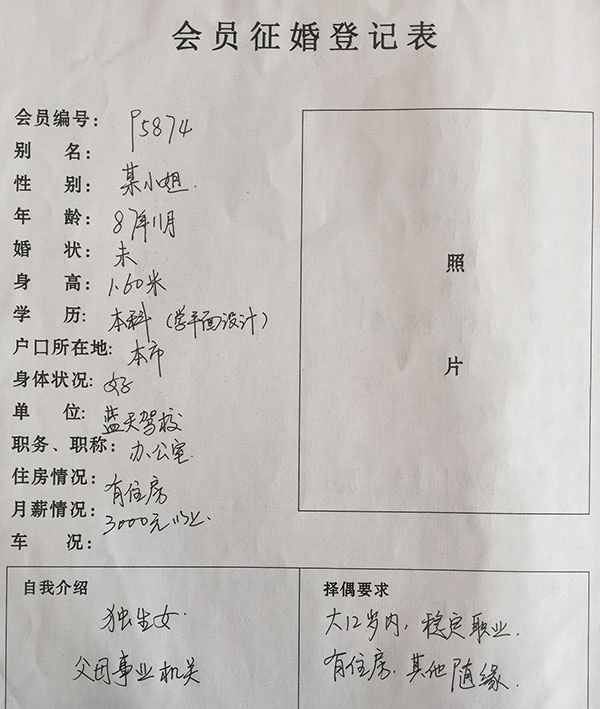 会员征婚登记表
会员编号: P5874
别 名:
性 别: 某小姐.
年 龄: 87年11月
婚 状: 未
身 高: 1.60米
学 历: 本科（学平面设计）
户口所在地: 本市
身体状况: 好
单 位: 蓝天驾校
职务、职称: 办公室.
住房情况: 有住房
月薪情况: 3000元以上.
车 况:
照
片
自我介绍
独生女.
父母事业机关
择偶要求
大12岁内，稳定职业.
有住房.其他随缘.